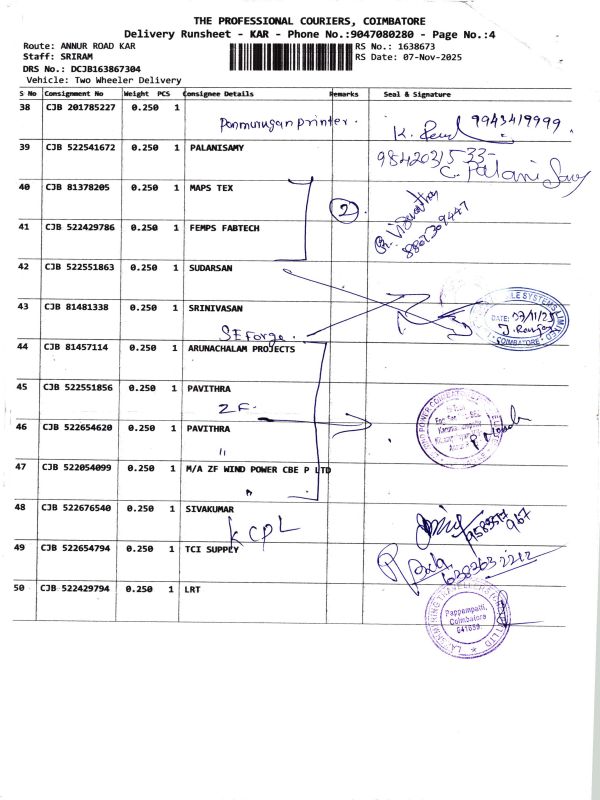 THE PROFESSIONAL COURIERS, COIMBATORE
Delivery Runsheet - KAR - Phone No.:9047080280 - Page No.:4
Route: ANNUR ROAD KAR
RS No.: 1638673
Staff: SRIRAM
RS Date: 07-Nov-2025
DRS No.: DCJB163867304
Vehicle: Two Wheeler Delivery
S No Consignment No Weight PCS Consignee Details Remarks Seal & Signature
38 CJB 201785227 0.250 1
Ponmurugan printer. 9943419999
39 CJB 522541672 0.250 1 PALANISAMY
9842031533
C. Palani Samy
40 CJB 81378205 0.250 1 MAPS TEX
2
41 CJB 522429786 0.250 1 FEMPS FABTECH
8807309447
42 CJB 522551863 0.250 1 SUDARSAN
43 CJB 81481338 0.250 1 SRINIVASAN
DATE: 07/11/25
COIMBATORE
SE Forge
44 CJB 81457114 0.250 1 ARUNACHALAM PROJECTS
45 CJB 522551856 0.250 1 PAVITHRA
ZF
46 CJB 522654620 0.250 1 PAVITHRA
"
47 CJB 522054099 0.250 1 M/A ZF WIND POWER CBE P LTD
"
48 CJB 522676540 0.250 1 SIVAKUMAR
KCPL
49 CJB 522654794 0.250 1 TCI SUPPLY
6382632212
50 CJB 522429794 0.250 1 LRT
Pappampatti,
Coimbatore
641659.